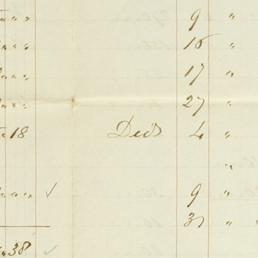 " " 9 "
" " 16 "
" " 17 "
" " 27 "
18 Died 4 "
"
" " ✓ 9 "
31 "
38 ✓